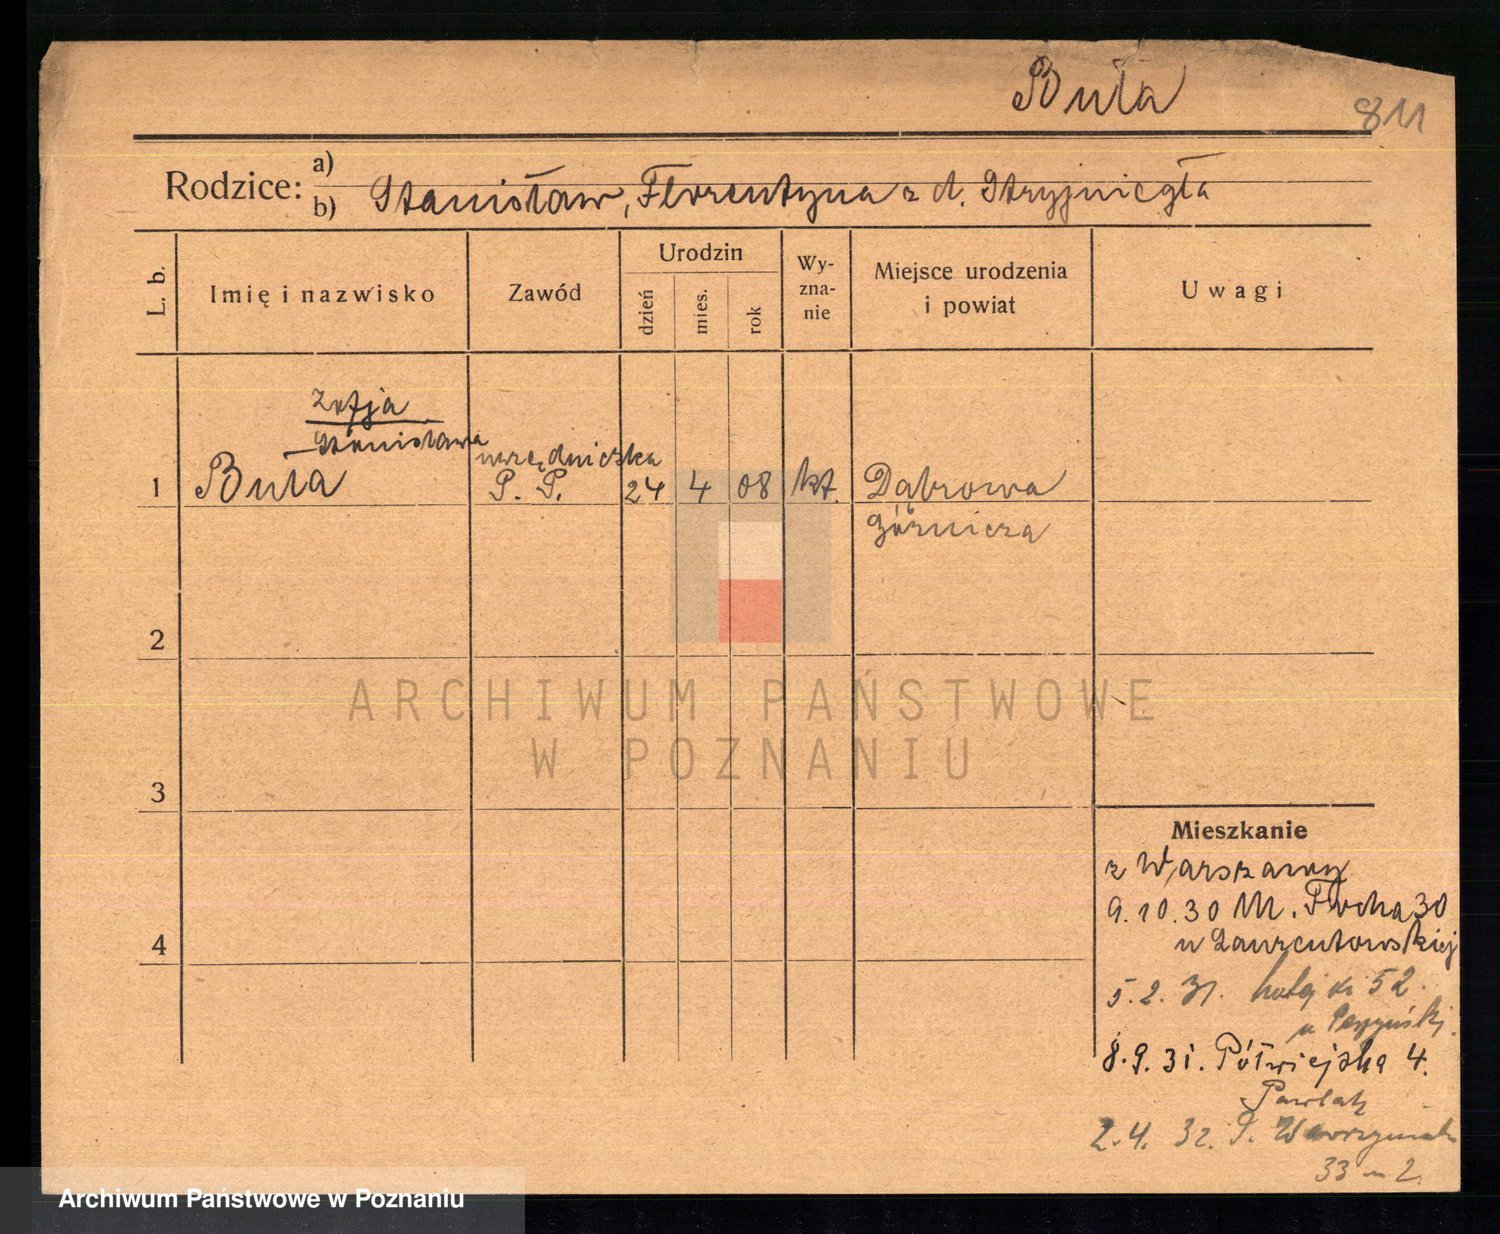 Buła
811
Rodzice: a)
b) Stanisław, Florentyna z d. Stryjniegła
L. b.
Imię i nazwisko
Zawód
Urodzin
dzień
mies.
rok
Wy-
zna-
nie
Miejsce urodzenia
i powiat
Uwagi
Zofja
Stanisława
1 Buła
urzędniczka
P. P.
24 4 08 kt. Dąbrowa
Górnicza
2
3
4
Mieszkanie
z Warszawy
9.10.30 M. Focha 30
u Laurentowskiej
5.2.31. kolejki 52.
8.9.31. Półwiejska 4.
Pawlak
2.4.32. G. Wawrzyniaka
33 m 2.
ARCHIWUM PAŃSTWOWE
W POZNANIU
Archiwum Państwowe w Poznaniu